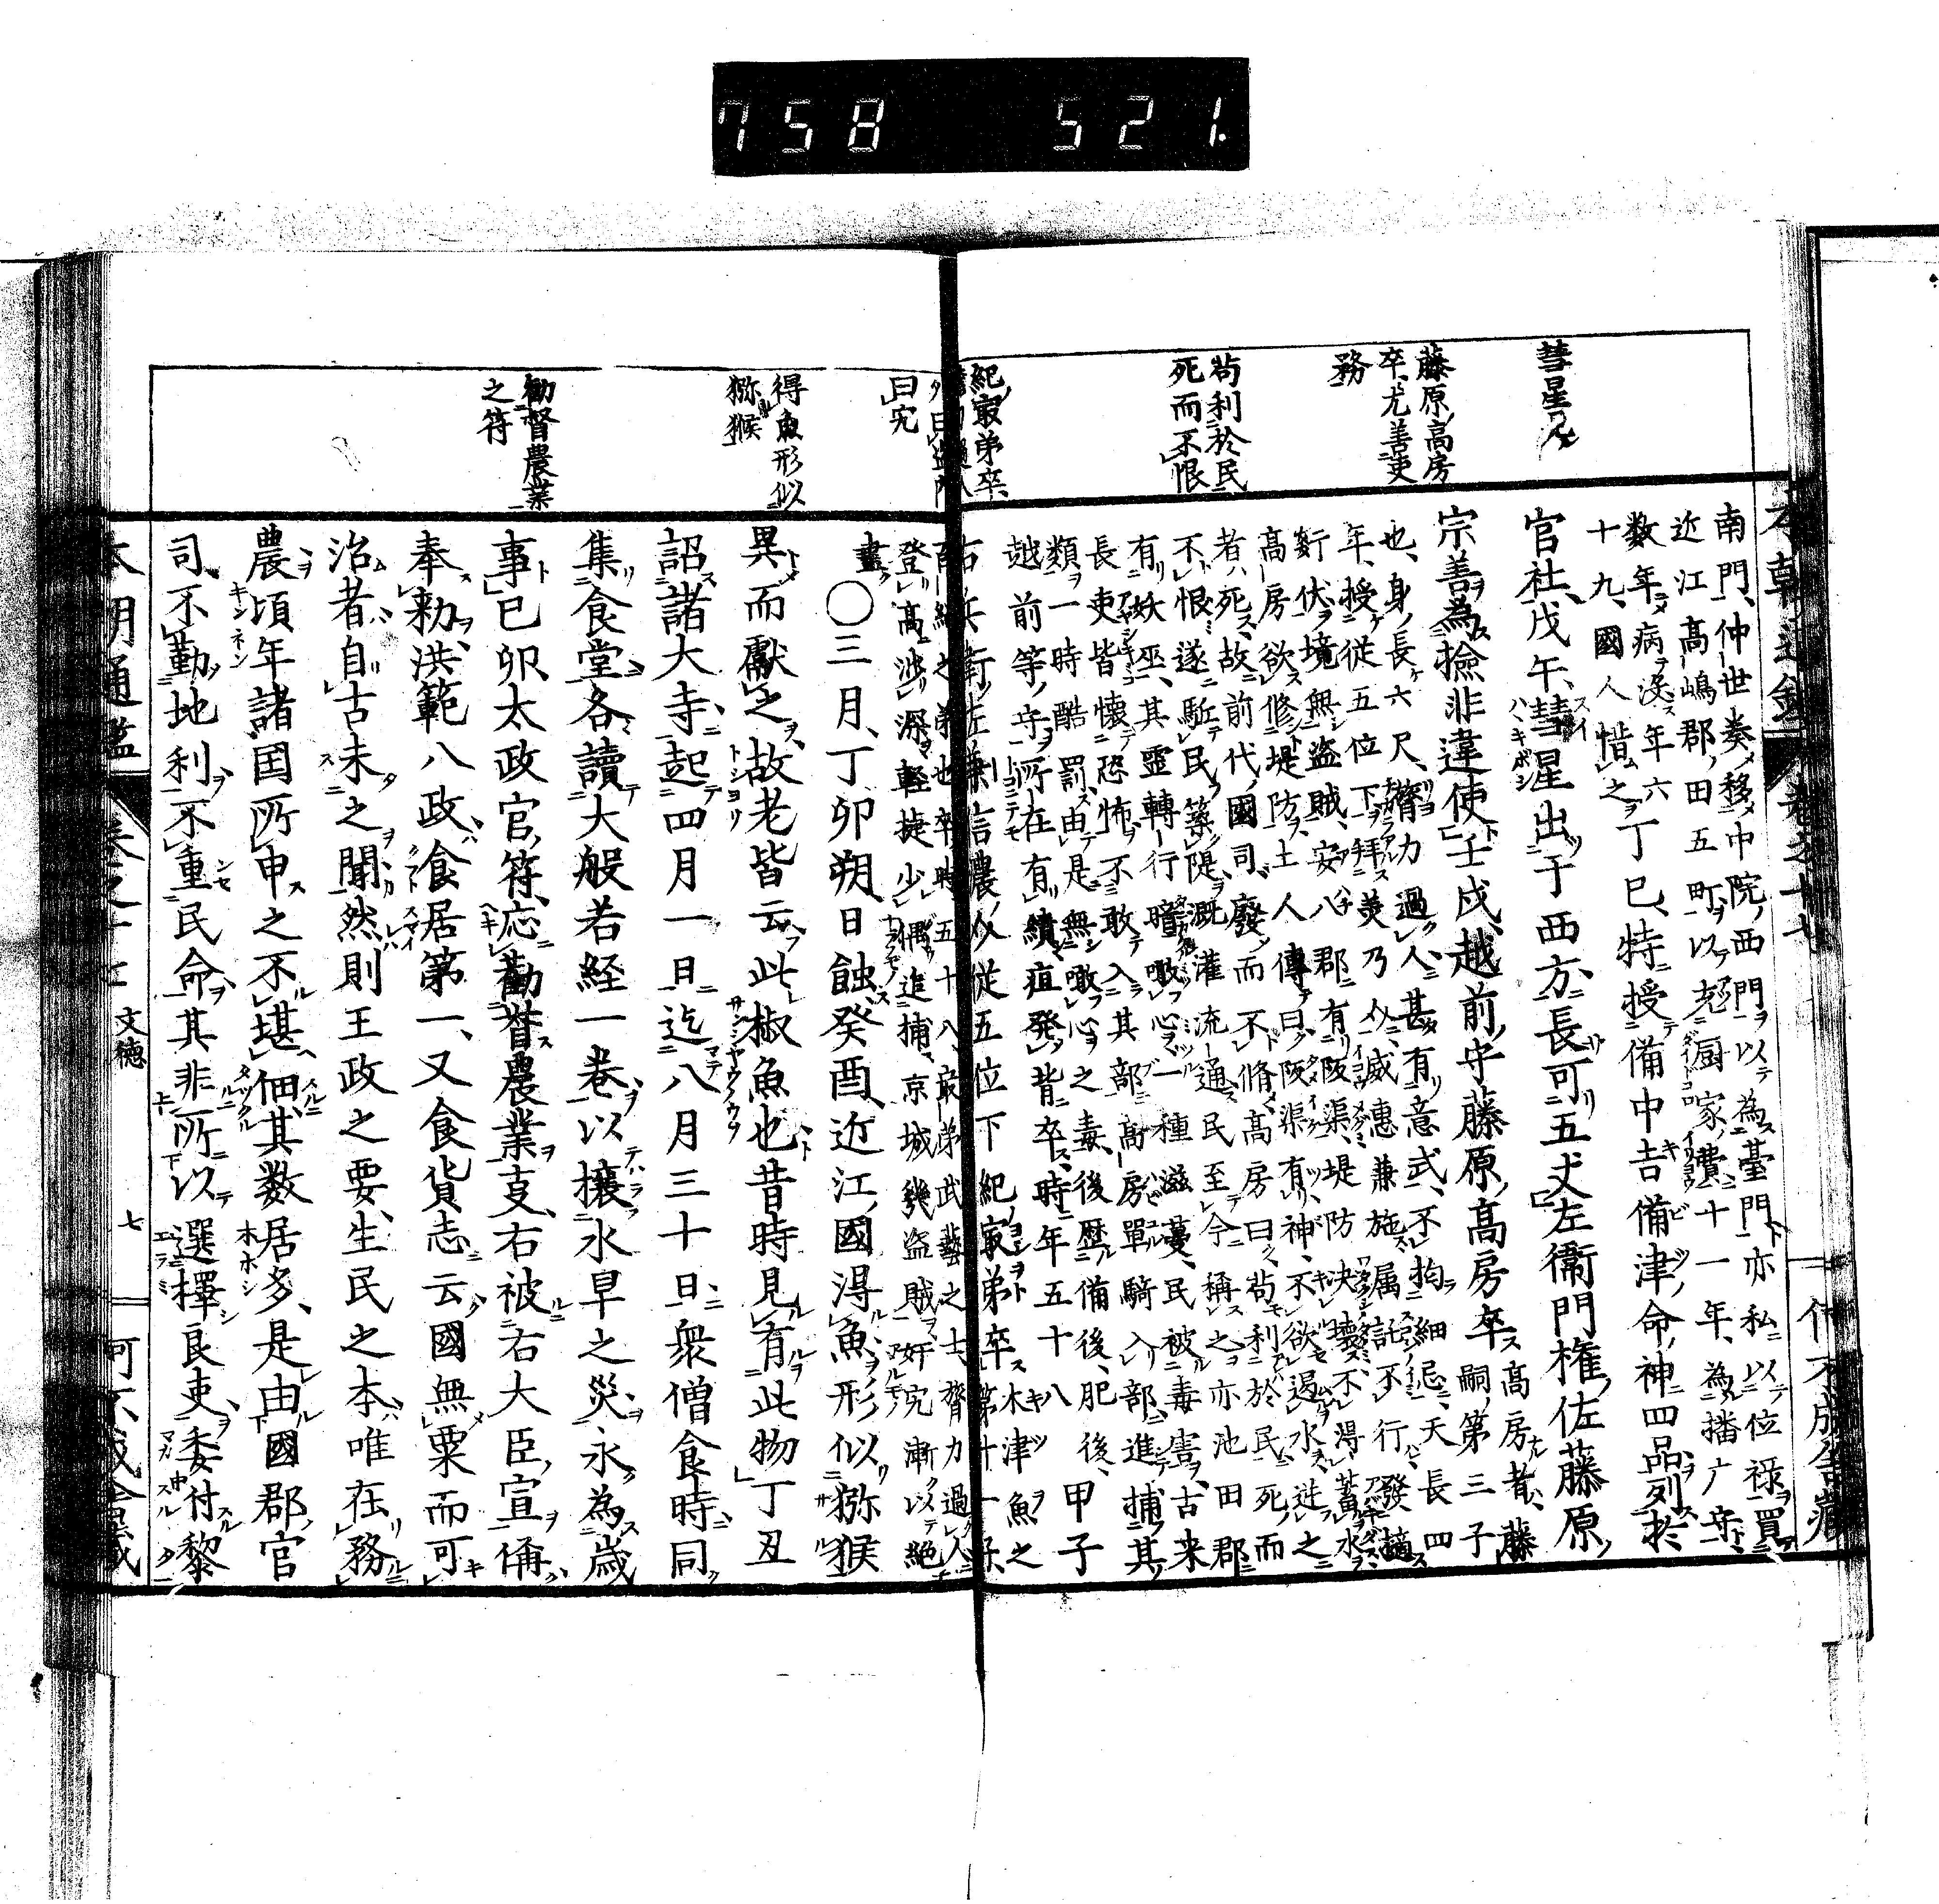 758 521.
彗星見
藤原高房
卒尤善吏
務
苟利於民
死而不恨
紀最弟卒
曰宄
得魚形似
獼猴
勸督農業
之符
南門、仲世奏移中院西門以為臺門亦私以位禄買
近江高嶋郡田五町以充厨家費十一年、為播广守、
数年病没年六
十九、國人惜之丁巳、特授備中吉備津命神四品列於
官社、戊午、彗星出于西方長可五丈左衞門権佐藤原
宗善為撿非違使壬戌、越前守藤原高房卒
高房者、藤
嗣第三子
也、身長六尺、膂力過人甚有意武、不拘細忌、天長四
年、授従五位下拜美乃介威惠兼施属託不行、發擿
姧伏境無盗賊、安八郡有陂渠、堤防決壊不得蓄水
高房欲修堤防土人傳曰、陂渠有神、不欲遏水、逆之
者死故前代國司廢而不脩高房曰、苟利於民死而
不恨遂駈民築隄漑灌流通民至今稱之亦池田郡
有妖巫、其靈轉行暗噉心一種滋蔓、民被毒害、古来
長吏皆懐恐怖、不敢入其部高房單騎入部進捕其
類一時酷罰由是無噉心之毒後歴備後、肥後、
越前等守所在有績疽発背卒、時年五十八
甲子
右兵衛佐兼
従五位下紀最弟卒
木津魚之
登高渉深、軽捷少偶追捕京城幾盗賊奸宄漸以絶
畫
○三月、丁卯朔、日蝕癸酉、近江國得魚形似獼猴
異而獻之故老皆云此椒魚也昔時見有此物丁丑
詔諸大寺起四月一日迄八月三十日衆僧食時同
集食堂各讀大般若経一巻以攘水旱之災永為歳
事己卯太政官符、応勸督農業支、右被右大臣宣偁
奉勑洪範八政食居第一、又食貨志云國無粟而可
治者自古未之聞然則王政之要、生民之本唯在務
農頃年諸国所申之不堪佃其数居多、是由國郡官
司、不勤地利不重民命其非所以選擇良吏委付黎
本朝通鑑
文徳
七